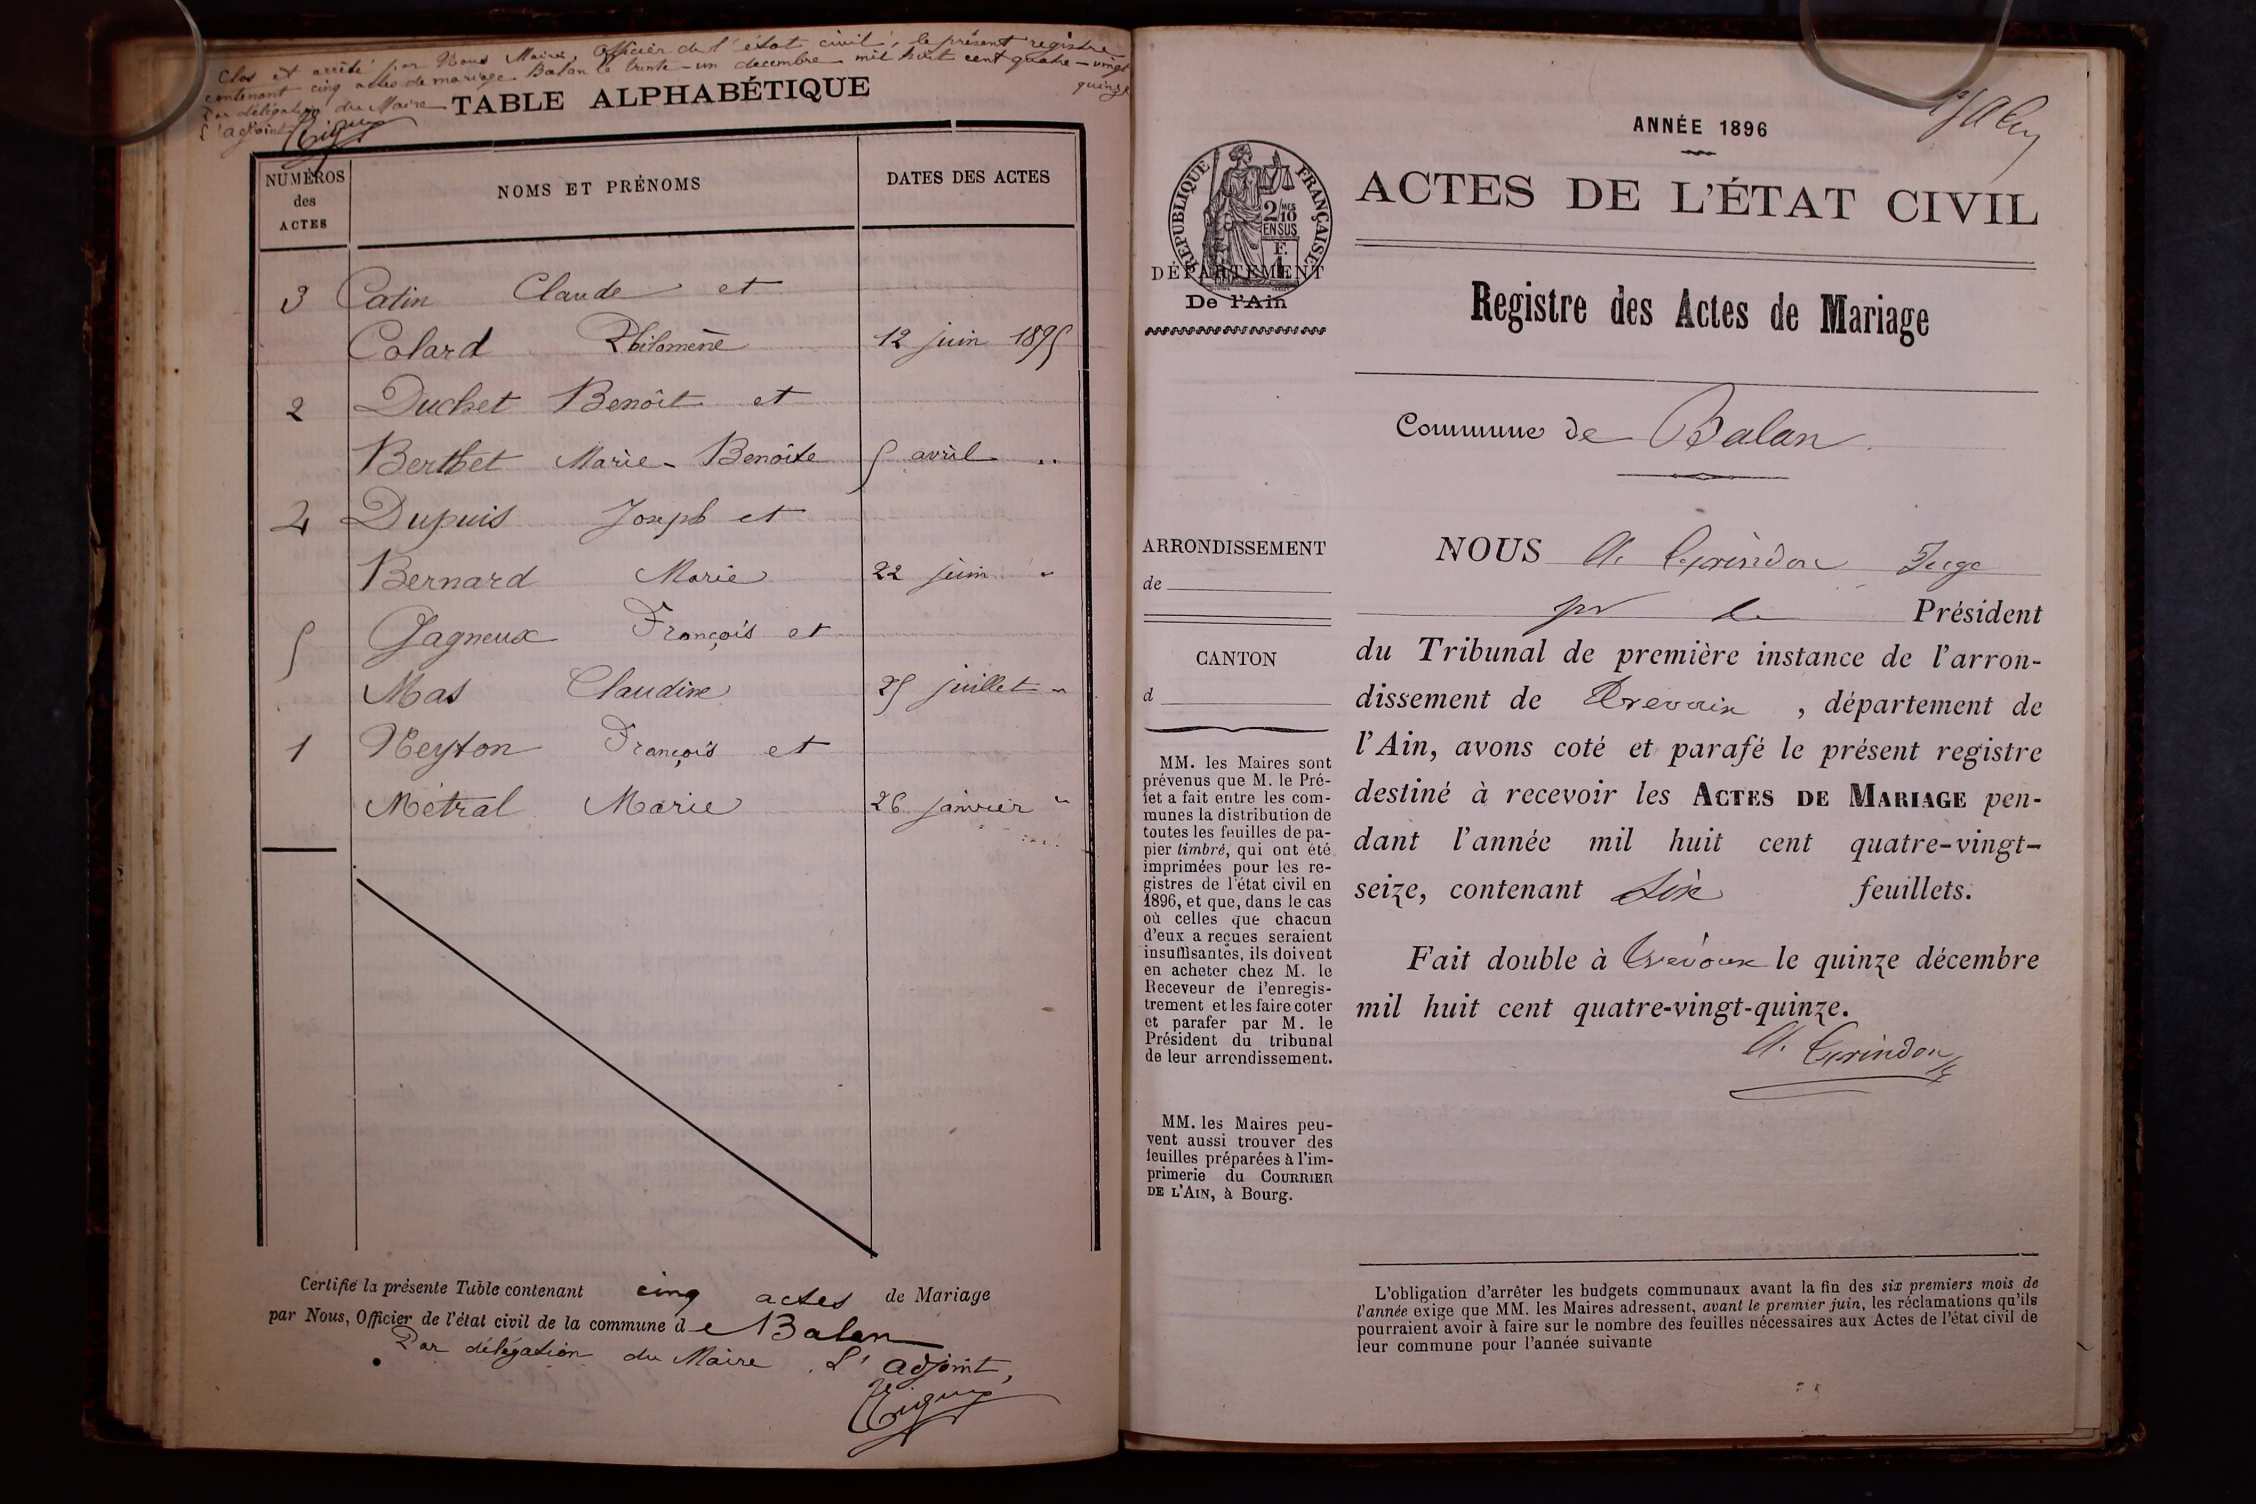 Clos et arrêté par Nous Maire, Officier de l'état civil, le présent registre
contenant cinq actes de mariage. Balan le trente-un décembre mil huit cent quatre-vingt
quinze
Par délégation du Maire
L'adjoint
TABLE ALPHABÉTIQUE
NUMÉROS
des
ACTES
NOMS ET PRÉNOMS
DATES DES ACTES
3 Catin Claude et
Colard Philomène 12 juin 1895
2 Duchet Benoît et
Berthet Marie-Benoite 5 avril "
4 Dupuis Joseph et
Bernard Marie 22 juin "
5 Gagneux François et
Mas Claudine 25 juillet "
1 Neyton François et
Métral Marie 26 janvier "
Certifié la présente Table contenant cinq actes de Mariage
par Nous, Officier de l'état civil de la commune de Balan
Par délégation du Maire L'adjoint,
ANNÉE 1896
RÉPUBLIQUE FRANÇAISE
2/10 MES
EN SUS
F.
1
DÉPARTEMENT
De l'Ain
ACTES DE L'ÉTAT CIVIL
Registre des Actes de Mariage
Commune de Balan
ARRONDISSEMENT
de
CANTON
d
MM. les Maires sont
prévenus que M. le Pré-
fet a fait entre les com-
munes la distribution de
toutes les feuilles de pa-
pier timbré, qui ont été
imprimées pour les re-
gistres de l'état civil en
1896, et que, dans le cas
où celles que chacun
d'eux a reçues seraient
insuffisantes, ils doivent
en acheter chez M. le
Receveur de l'enregis-
trement et les faire coter
et parafer par M. le
Président du tribunal
de leur arrondissement.
MM. les Maires peu-
vent aussi trouver des
feuilles préparées à l'im-
primerie du COURRIER
DE L'AIN, à Bourg.
NOUS A. Grindon Juge
pr le Président
du Tribunal de première instance de l'arron-
dissement de Trevoux , département de
l'Ain, avons coté et parafé le présent registre
destiné à recevoir les ACTES DE MARIAGE pen-
dant l'année mil huit cent quatre-vingt-
seize, contenant six feuillets.
Fait double à Trévoux le quinze décembre
mil huit cent quatre-vingt-quinze.
A. Grindon
L'obligation d'arrêter les budgets communaux avant la fin des six premiers mois de
l'année exige que MM. les Maires adressent, avant le premier juin, les réclamations qu'ils
pourraient avoir à faire sur le nombre des feuilles nécessaires aux Actes de l'état civil de
leur commune pour l'année suivante